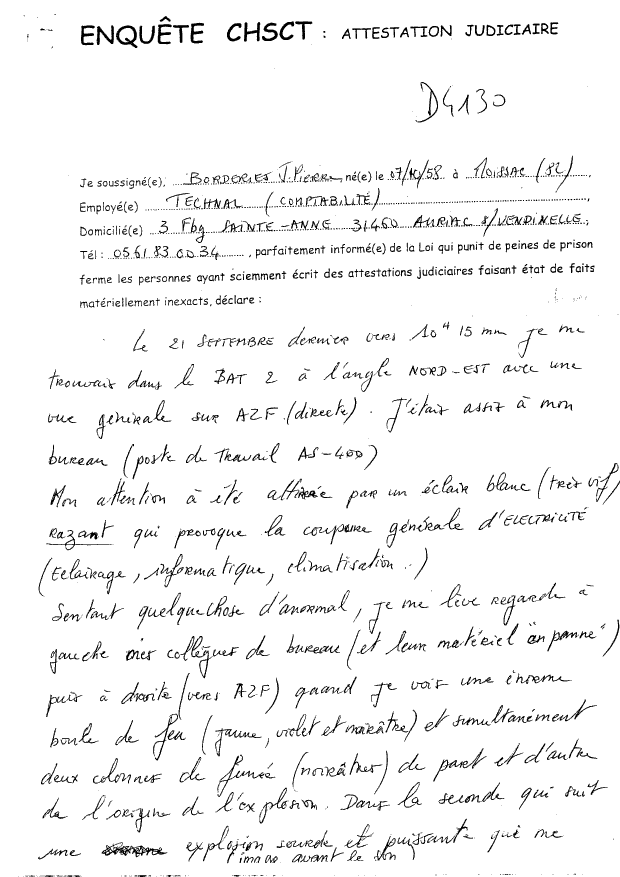 ENQUÊTE CHSCT : ATTESTATION JUDICIAIRE
D4130
Je soussigné(e), BORDERIES J. PIERRE, né(e) le 07/10/58 à MOISSAC (82)
Employé(e) TECHNAL (COMPTABILITÉ)
Domicilié(e) 3 Fbg SAINTE-ANNE 31460 AURIAC s/VENDINELLE,
Tél : 05 61 83 00 34, parfaitement informé(e) de la Loi qui punit de peines de prison
ferme les personnes ayant sciemment écrit des attestations judiciaires faisant état de faits
matériellement inexacts, déclare :
Le 21 SEPTEMBRE dernier vers 10H 15 mm je me
trouvais dans le BAT 2 à l'angle NORD-EST avec une
vue générale sur AZF (directe). J'étais assis à mon
bureau (poste de Travail AS-400)
Mon attention à été attirée par un éclair blanc (très vif,
Razant qui provoque la coupure générale d'ELECTRICITÉ
(Eclairage, informatique, climatisation..)
Sentant quelquechose d'anormal, je me lève regarde à
gauche mes collègues de bureau (et leur matériel "en panne")
puis à droite (vers AZF) quand je vois une énorme
boule de feu (jaune, violet et noirâtre) et simultanément
deux colonnes de fumée (noirâtres) de part et d'autre
de l'origine de l'explosion. Dans la seconde qui suit
une explosion sourde et puissante que me
(image avant le son)